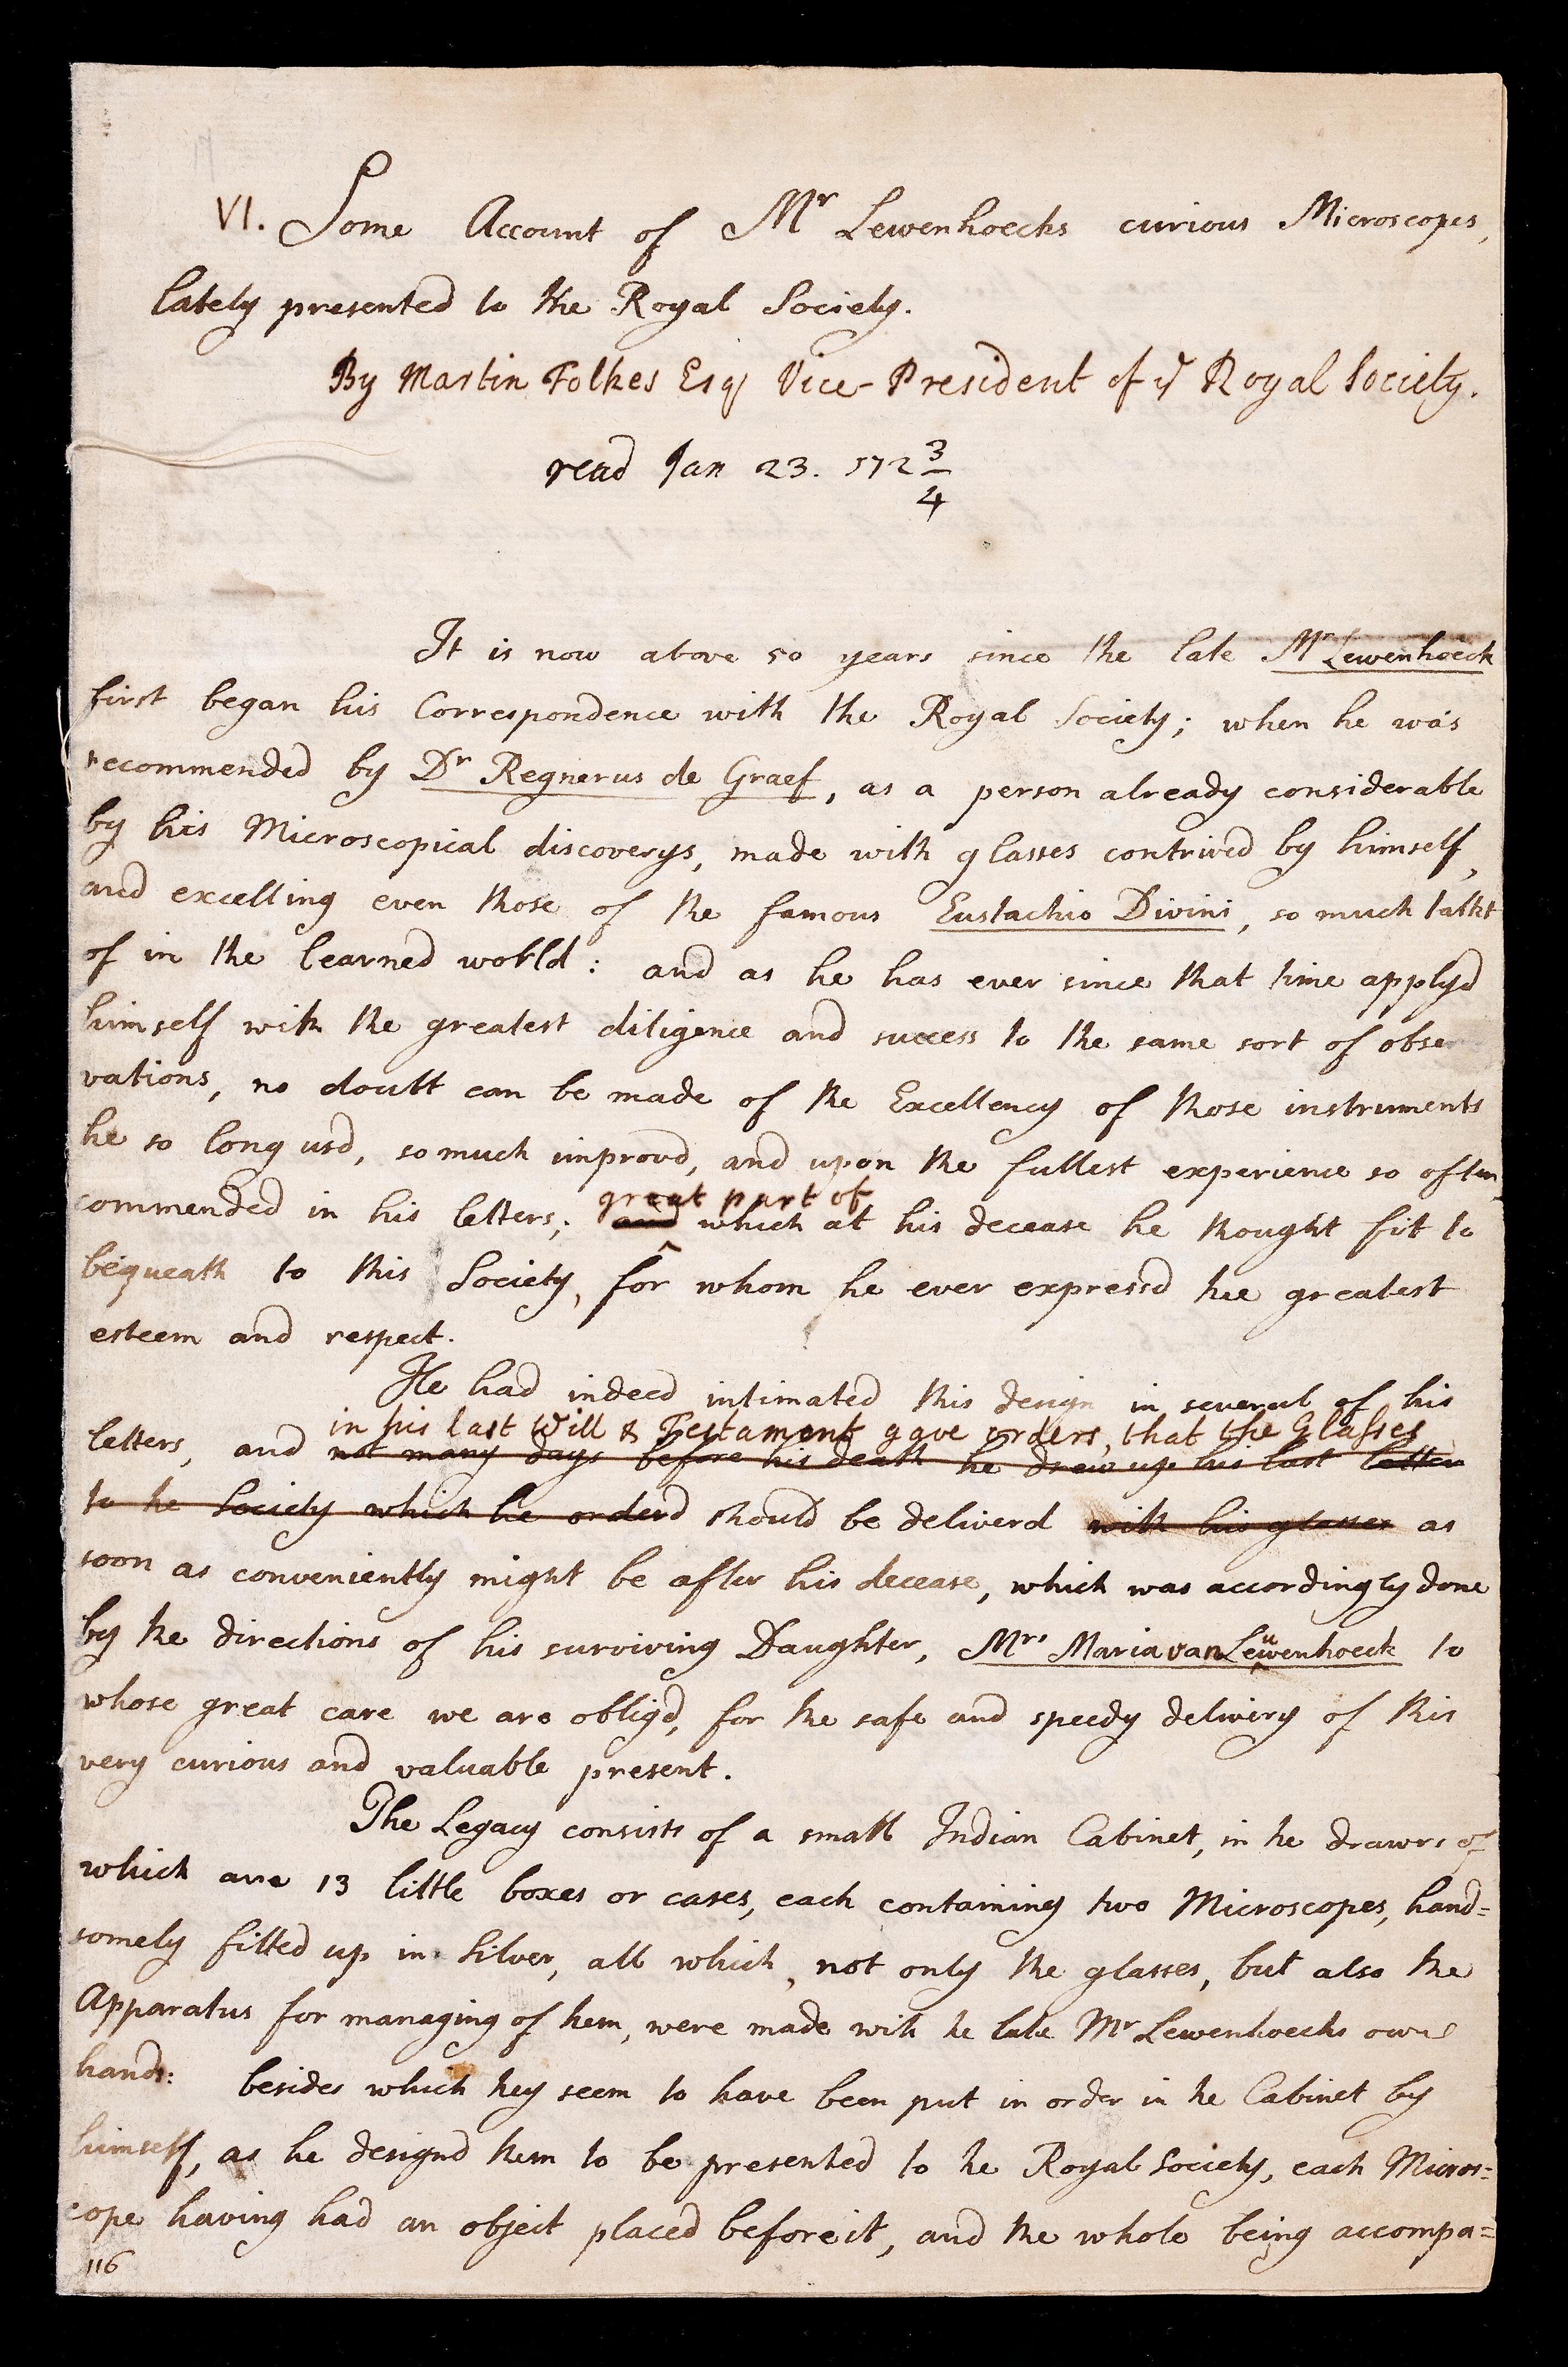 VI. Some Account of Mr Lewenhoecks curious Microscopes,
lately presented to the Royal Society.
By Martin Folkes Esq Vice-President of ye Royal Society.
read Jan 23. 172 3/4
It is now above 50 years since the late Mr Lewenhoeck
first began his Correspondence with the Royal Society; when he was
recommended by Dr Regnerus de Graef, as a person already considerable
by his Microscopical discoverys, made with glasses contrived by himself,
and excelling even those of the famous Eustachio Divini, so much talkt
of in the learned world: and as he has ever since that time applyd
himself with the greatest diligence and success to the same sort of obser
vations, no doubt can be made of the Excellency of those instruments
he so long usd, so much improvd, and upon the fullest experience so often
great part of
commended in his letters; and which at his decease he thought fit to
bequeath to this Society, for whom he ever expressd the greatest
esteem and respect.
He had indeed intimated this design in several of his
in his last Will & Testament gave orders, that the Glasses
letters, and not many days before his death he drew up his last letter
to the Society which he orderd should be deliverd with his glasses as
soon as conveniently might be after his decease, which was accordingly done
by the directions of his surviving Daughter, Mrs Maria van Leuwenhoeck to
whose great care we are obligd, for the safe and speedy delivery of this
very curious and valuable present.
The Legacy consists of a small Indian Cabinet, in the drawrs of
which are 13 little boxes or cases, each containing two Microscopes, hand=
somely fitted up in Silver, all which, not only the glasses, but also the
Apparatus for managing of them, were made with the late Mr Lewenhoecks own
hands: besides which they seem to have been put in order in the Cabinet by
himself, as he designd them to be presented to the Royal Society, each Micros=
cope having had an object placed before it, and the whole being accompa=
116